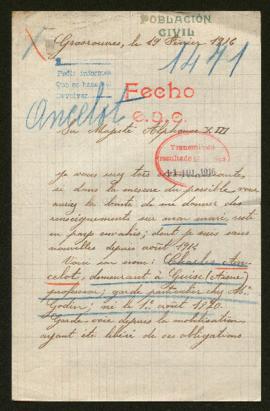 POBLACIÓN
CIVIL
le 29 Février 1916
1471
Pedir informes
Que se hace
Devolver
Fecho
e.g.c.
Ancelot
Sa Majesté Alphonse XIII
Transmitido
resultado
11 JUL. 1916
Je vous serez très
si, dans la mesure du possible, vous
auriez la bonté de me donner des
renseignements sur mon mari, resté
en pays envahis; dont je suis sans
nouvelles depuis août 1914
Voici son nom: Charles An-
celot, demeurant à Guise (Aisne)
professeur, garde particulier chez Mr
Godin, né le 1er août 1870.
Garde voie depuis la mobilisation
ayant été libéré de ses obligations